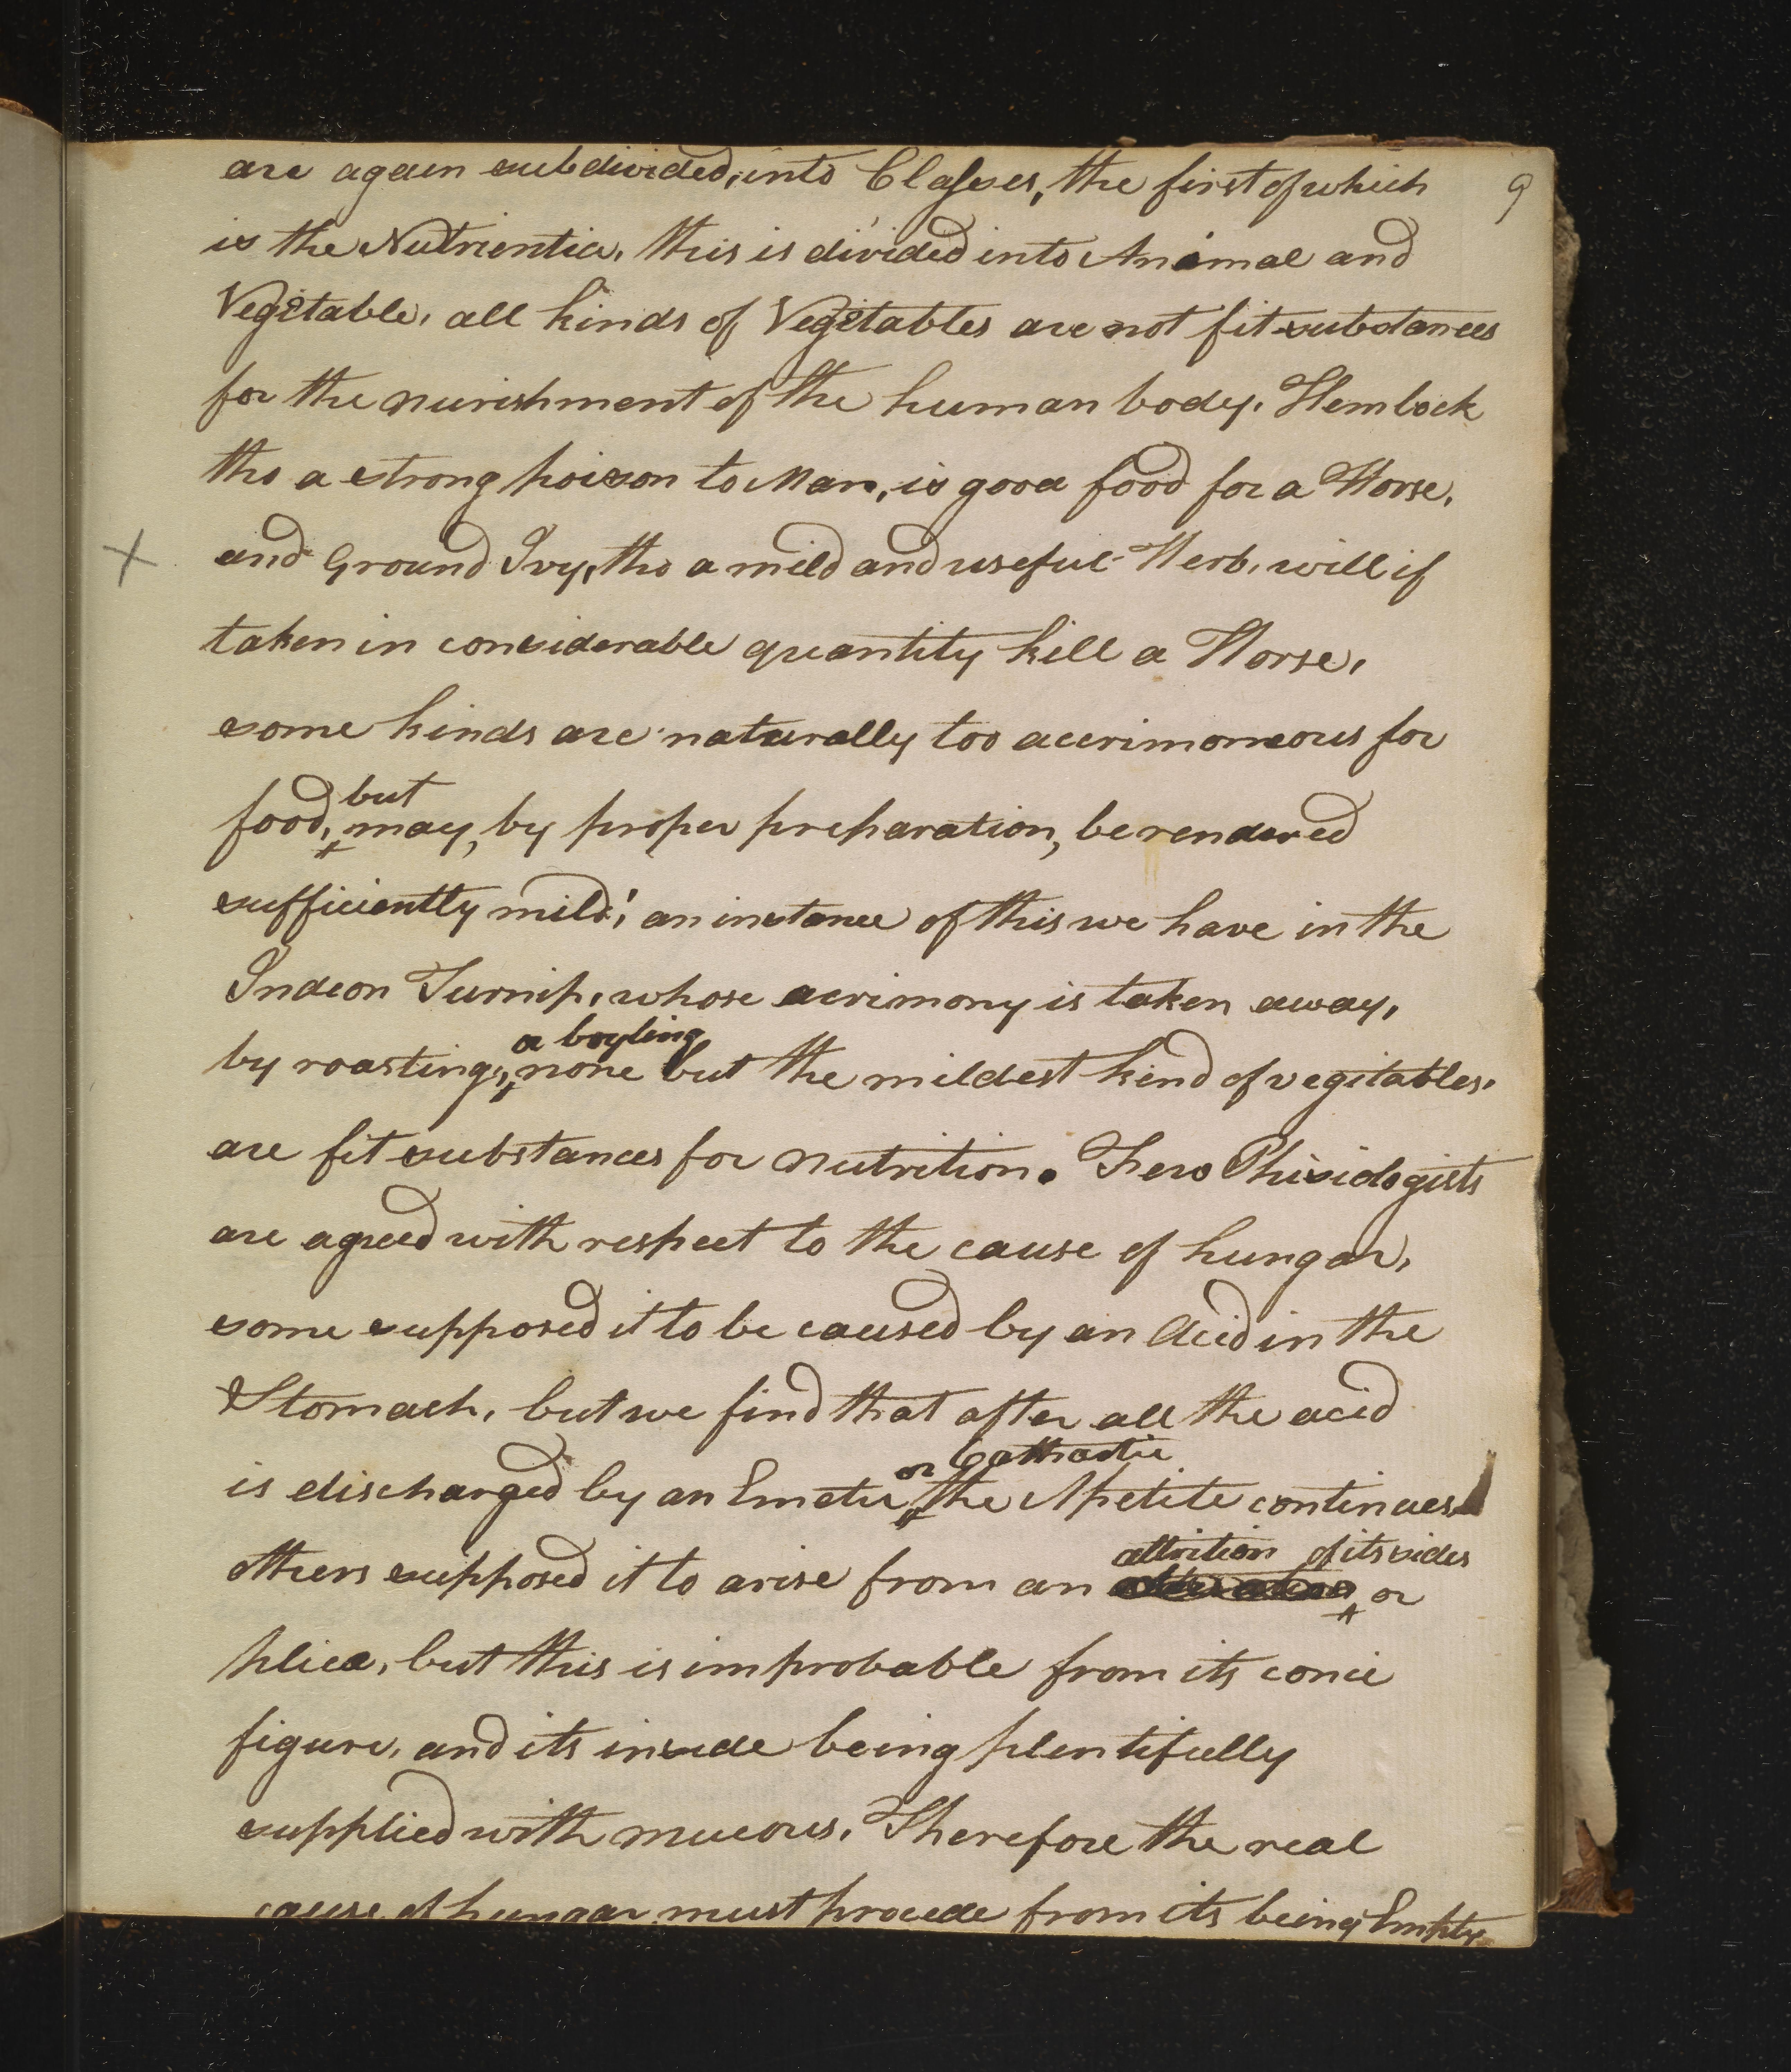 9
are again subdivided, into Classes, the first of which
is the Nutrientia, this is divided into Animal and
Vegetable, all kinds of Vegetables are not fit substances
for the nurishment of the human body. Hemlock
tho a strong poison to Man, is good food for a Horse,
X and Ground Ivy, tho a mild and useful Herb, will if
taken in considerable quantity kill a Horse,
some kinds are naturally too accrimoneous for
but
food, may, by proper preparation, be rendered
sufficiently mild; an instance of this we have in the
Indeon Turnip, whose acrimony is taken away,
a boyling
by roasting, none but the mildest kind of vegitables,
are fit substances for nutrition. Few Phisiologists
are agreed with respect to the cause of hungar,
some supposed it to be caused by an Acid in the
Stomach, but we find that after all the acid
or Cathartic
is discharged by an Emetic, the Apetite continues
attrition of its sides
others supposed it to arise from an or
plica, but this is improbable from its conic
figure, and its inside being plentifully
supplied with mucous. Therefore the real
cause of hungar must procede from its being Empty